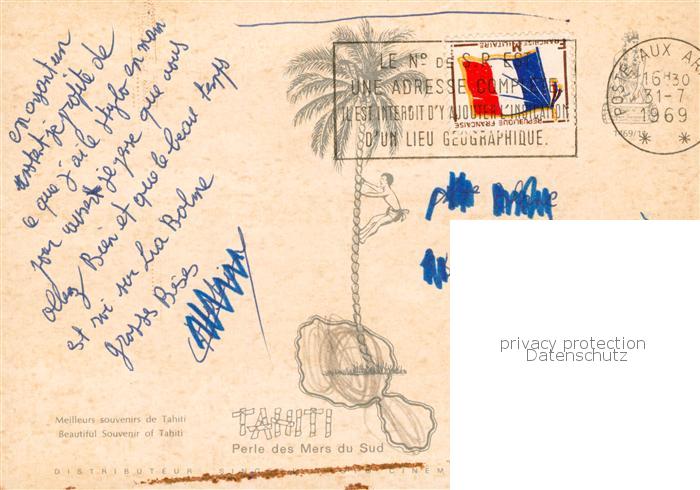 en ayant un
instant je profite de
ce que j'ai le stylo en main
pour je pense que vous
allez Bien et que le beau temps
est roi sur La Bolme
grosses Bises
LE No DE S.P. EST
UNE ADRESSE COMPLETE
IL EST INTERDIT D'Y AJOUTER L'INDICATION
D'UN LIEU GEOGRAPHIQUE.
FRANCHISE MILITAIRE
REPUBLIQUE FRANÇAISE
POSTE AUX AR
16H30
31-7
1969
privacy protection
Datenschutz
Meilleurs souvenirs de Tahiti
Beautiful Souvenir of Tahiti
TAHITI
Perle des Mers du Sud
DISTRIBUTEUR CINÉM